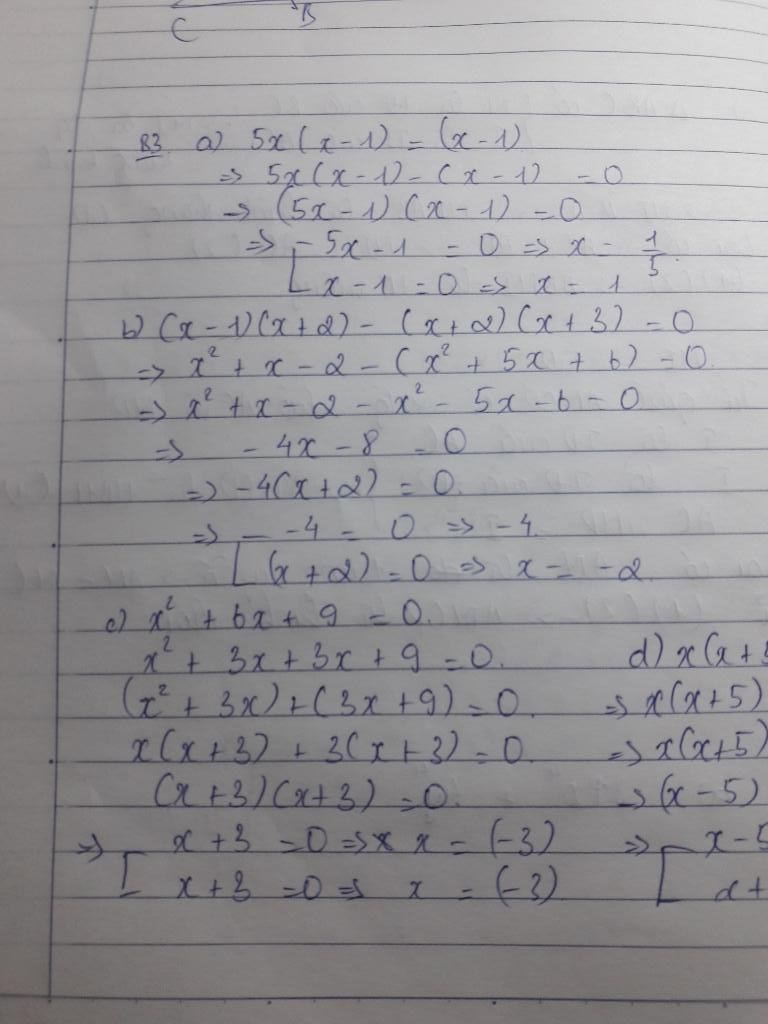 C B
B3. a) 5x(x-1) = (x-1)
=> 5x(x-1) - (x-1) = 0
=> (5x-1)(x-1) = 0
=> [ 5x-1 = 0 => x = 1/5.
x-1 = 0 => x = 1
b) (x-1)(x+2) - (x+2)(x+3) = 0
=> x² + x - 2 - (x² + 5x + 6) = 0.
=> x² + x - 2 - x² - 5x - 6 = 0
=> - 4x - 8 = 0
=> -4(x+2) = 0.
=> [ -4 = 0 => -4.
(x+2) = 0 => x = -2.
c) x² + 6x + 9 = 0.
x² + 3x + 3x + 9 = 0.
(x² + 3x) + (3x + 9) = 0.
x(x+3) + 3(x+3) = 0.
(x+3)(x+3) = 0.
=> [ x+3 = 0 => x = (-3)
x+3 = 0 => x = (-3)
d) x(x+
=> x(x+5)
=> x(x+5)
=> (x-5)
=> [ x-5
x+